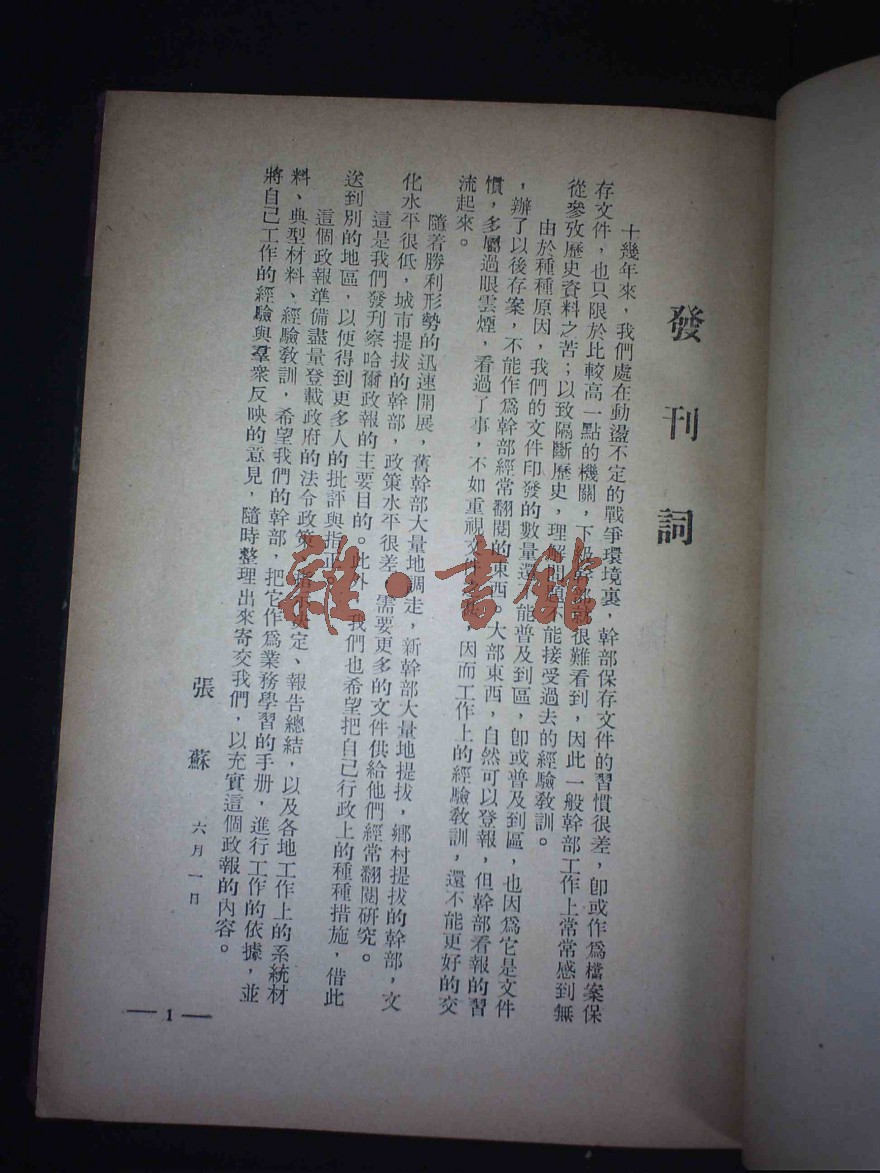 發刊詞
十幾年來，我們處在動盪不定的戰爭環境裏，幹部保存文件的習慣很差，卽或作爲檔案保
存文件，也只限於比較高一點的機關，下級幹部就很難看到，因此一般幹部工作上常常感到無
從參攷歷史資料之苦；以致隔斷歷史，理解問題不能接受過去的經驗敎訓。
由於種種原因，我們的文件印發的數量還不能普及到區，卽或普及到區，也因爲它是文件
，辦了以後存案，不能作爲幹部經常翻閱的東西。大部東西，自然可以登報，但幹部看報的習
慣，多屬過眼雲煙，看過了事，不如重視文件，因而工作上的經驗敎訓，還不能更好的交
流起來。
隨着勝利形勢的迅速開展，舊幹部大量地調走，新幹部大量地提拔，鄉村提拔的幹部，文
化水平很低，城市提拔的幹部，政策水平很差，需要更多的文件供給他們經常翻閱研究。
這是我們發刊察哈爾政報的主要目的。此外，我們也希望把自己行政上的種種措施，借此
送到別的地區，以便得到更多人的批評與指正。
這個政報準備盡量登載政府的法令政策、決定、報告總結，以及各地工作上的系統材
料、典型材料、經驗敎訓，希望我們的幹部，把它作爲業務學習的手册，進行工作的依據，並
將自己工作的經驗與羣衆反映的意見，隨時整理出來寄交我們，以充實這個政報的內容。
張蘇 六月一日
— 1 —
雜·書館